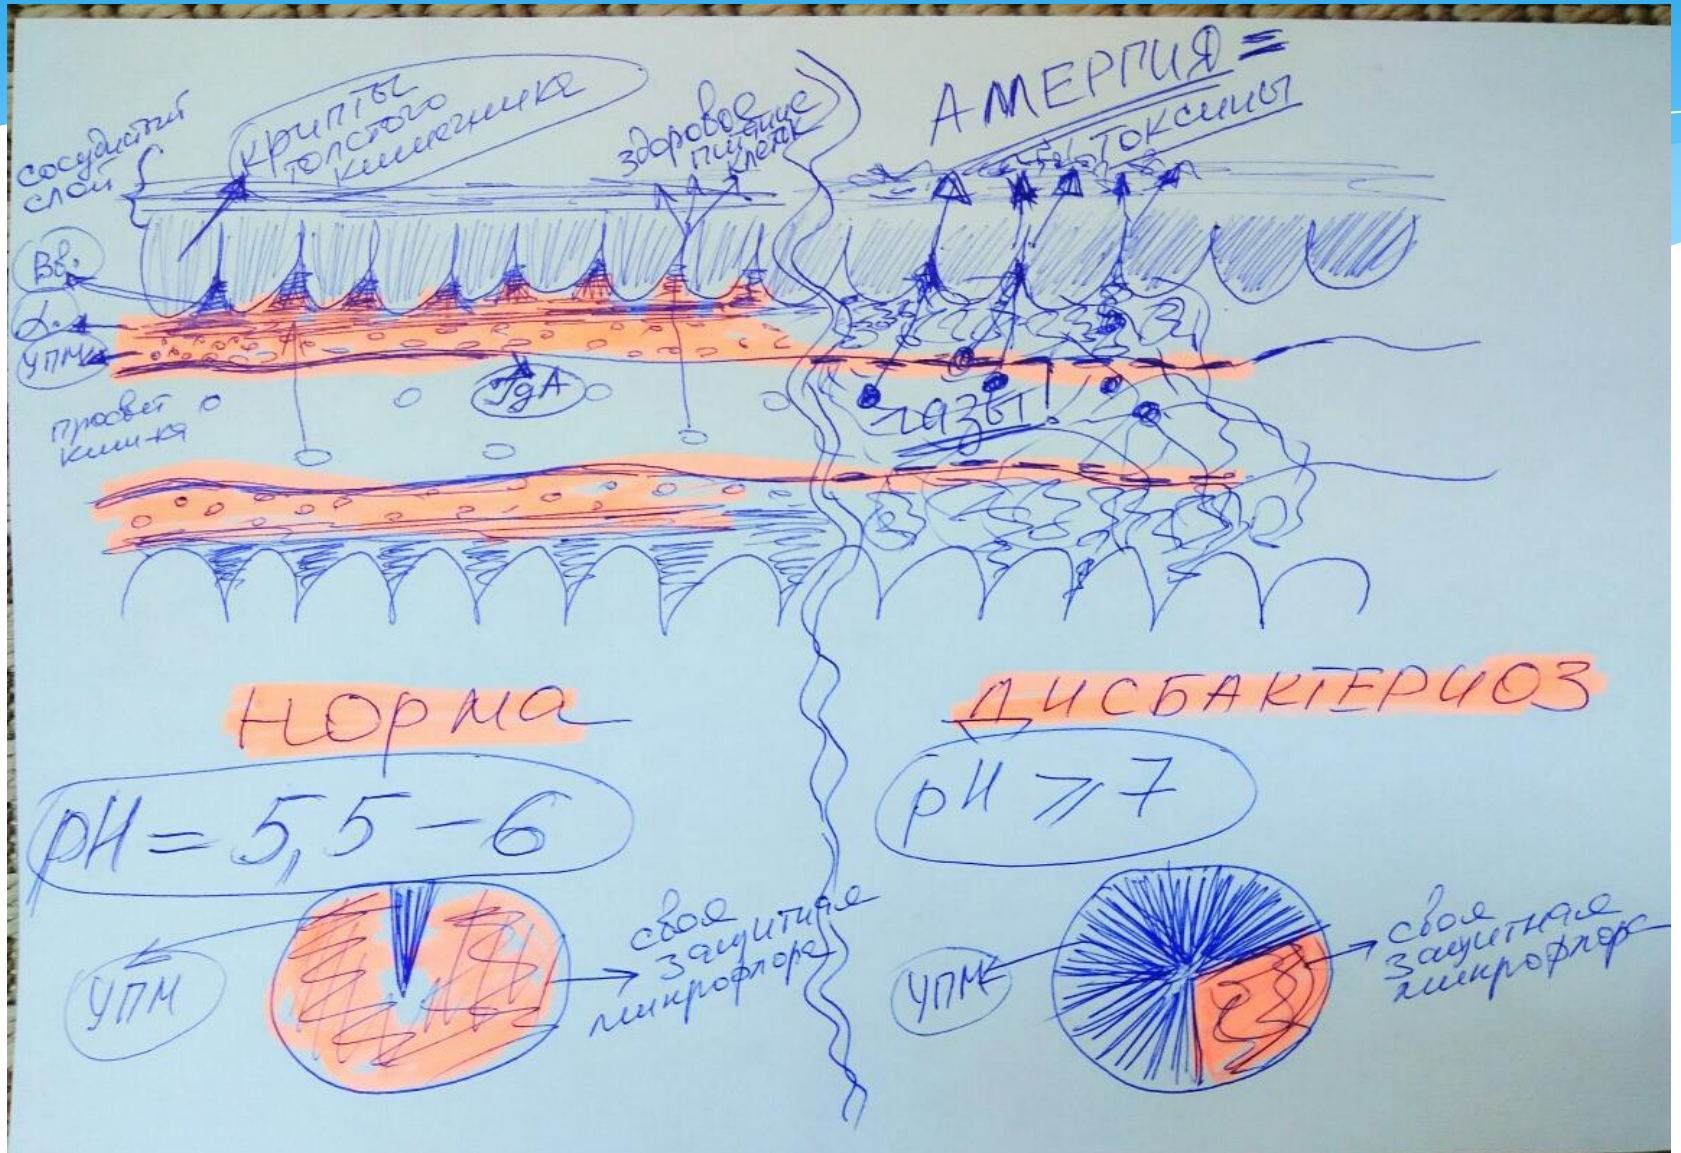 сосудистый
слой
крипты
толстого
кишечника
здоровое
питание
клеток
АЛЛЕРГИЯ =
ТОКСИНЫ
Вв.
L.
УПМ
просвет
кишка
IgA
газы!
НОРМА
ДИСБАКТЕРИОЗ
pH = 5,5 – 6
pH ⩾ 7
УПМ
своя
защитная
микрофлора
УПМ
своя
защитная
микрофлора